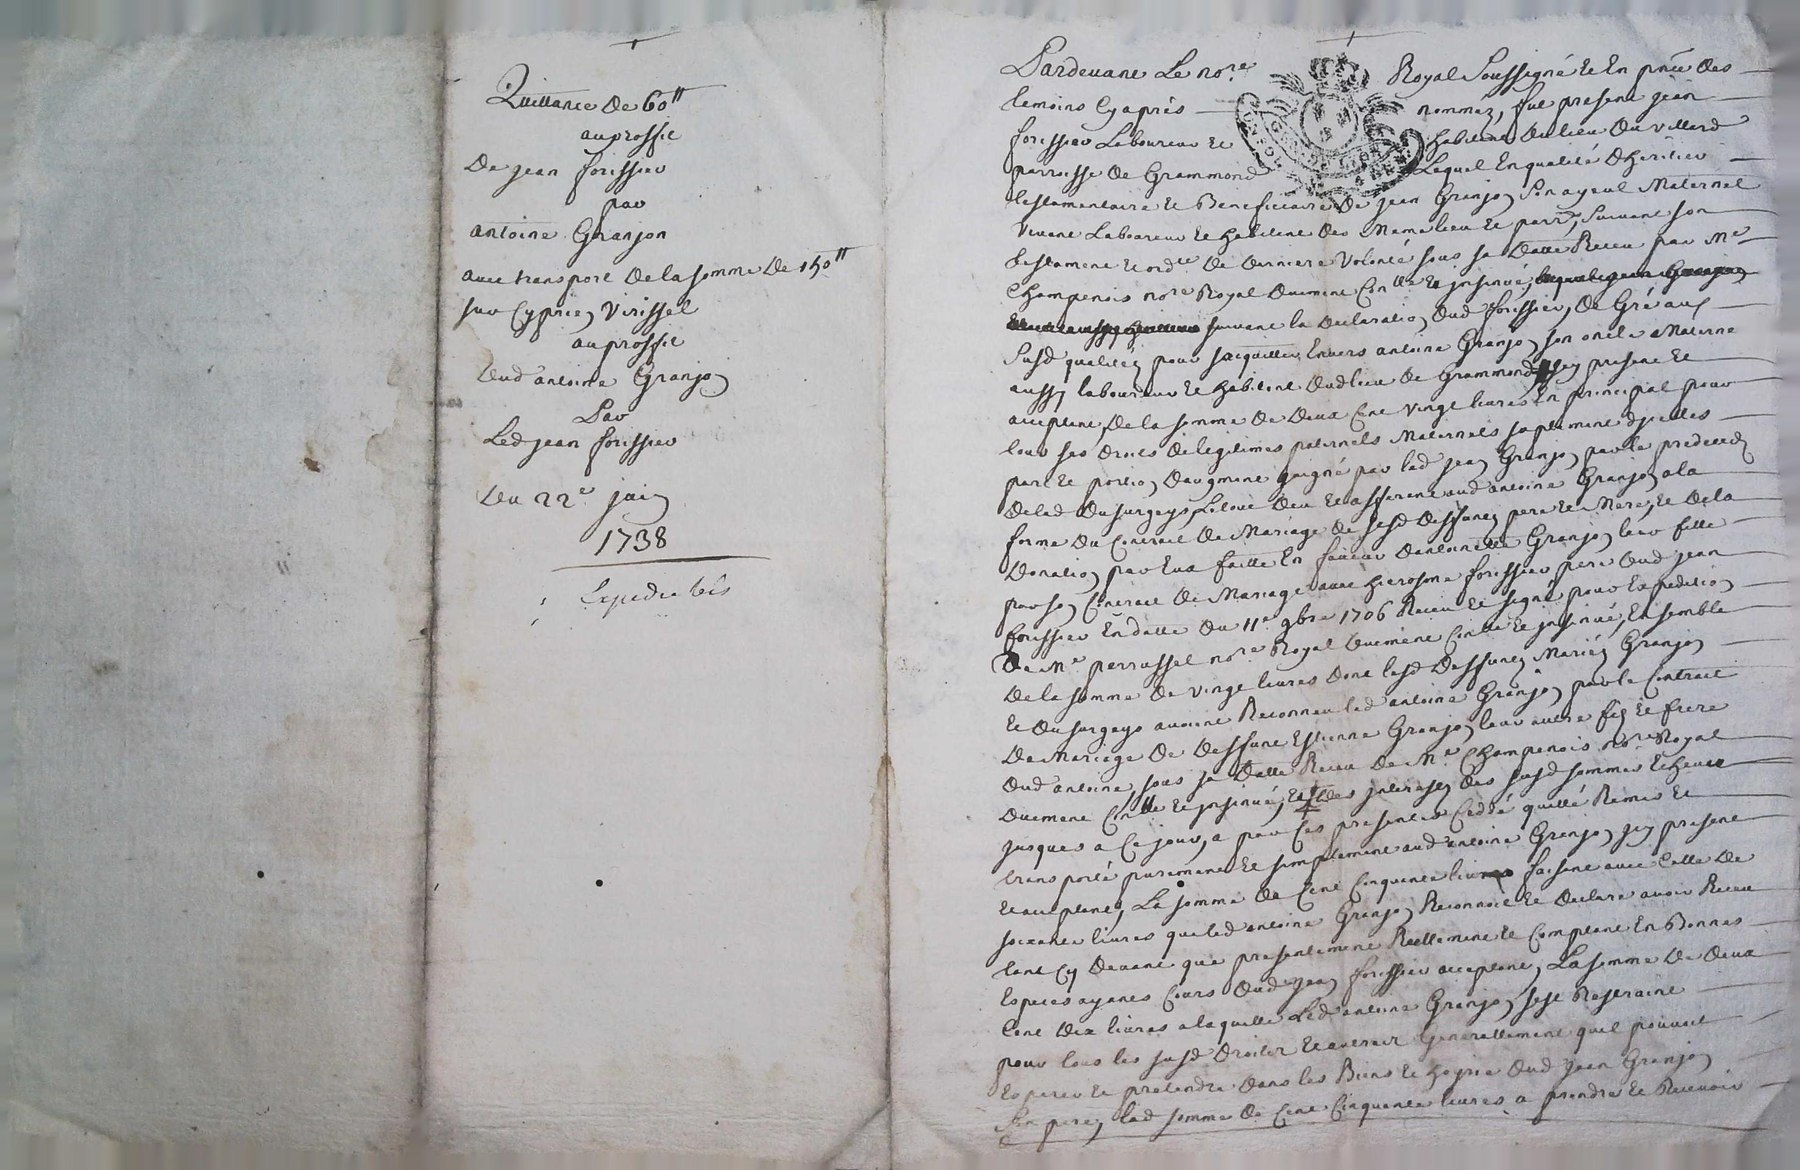 Quittance de 60ᵗᵗ
au proffit
De jean forissier
par
antoine Granjon
avec transport de la somme de 150ᵗᵗ
sur Cyprien Virissel
au proffit
Dud antoine Granjon
Par
Led jean forissier
Du 22e juin
1738
Expedié
Pardevant Le nore Royal Soussigné Et En pnce des
temoins Cyaprés nommez, fut present jean
forissier Laboureur Et habitant du lieu du villard
parroisse de Grammond Lequel En qualité d'heritier
testamentaire Et Beneficiaire de jean Granjon Son ayeul Maternel
vivant Laboureur Et habitant des Meme lieu Et parr, Suivant son
testament Et ordce de derniere Volonté sous sa datte Receu par Me
Champenois nore Royal duement Conllé Et jnsinué,
suivant la declaration dud forissier, de Gré aux
Susd qualitéz pour sacquitter Envers antoine Granjon son oncle Materne
aussy laboureur Et habitant dud lieu de Grammond jcy present Et
acceptant, de la somme de deux Cent vingt livres En principal pour
tous ses droits de legitimes paternels Maternels suplement djcelles
part Et portion daugment gaigné par led jean Granjon par le predeced
de lad dusurgeys, Le tout deu Et afferant aud antoine Granjon a la
forme du Contrait de Mariage de sesd deffunts pere Et Mere, Et de la
Donation par Eux faitte En faveur dantoinette Granjon leur fille
par son Contrait de Mariage avec hierosme forissier pere dud jean
forissier En datte du 11e 9bre 1706 Receu Et signé pour Expedition
De Me perrussel nore Royal duement Conllé Et jnsinué, Ensemble
de la somme de vingt livres dont lesd deffuncts Mariéz Granjon
Et dusurgeys avoint Reconneu led antoine Granjon par le Contrait
de Mariage de deffunt Estienne Granjon leur autre fils Et frere
dud antoine, sous sa datte Receu de Me Champenois nore Royal
duement Conllé Et jnsinué, Et des jnterests des susd sommes Echeus
jusques a Ce jour, a par Ces presentes Ceddé quitté Remis Et
transporté purement Et simplement aud antoine Granjon jcy present
Et acceptant, La somme de Cent Cinquante livres faisant avec Celle de
soixante livres que led antoine Granjon Reconnoit Et declare avoir Receu
tant Cy devant que presentement Reellement Et Comptant En Bonnes
Especes ayants Cours dud jean forissier acceptant, La somme de deux
Cent dix livres a laquelle Led antoine Granjon sest Restraint
pour tous les susd droits Et autres Generallement quil pouvoit
Esperer Et pretendre dans les Biens Et hoyrie dud jean Granjon
Son pere, lad somme de Cent Cinquante livres a prendre Et Recevoir